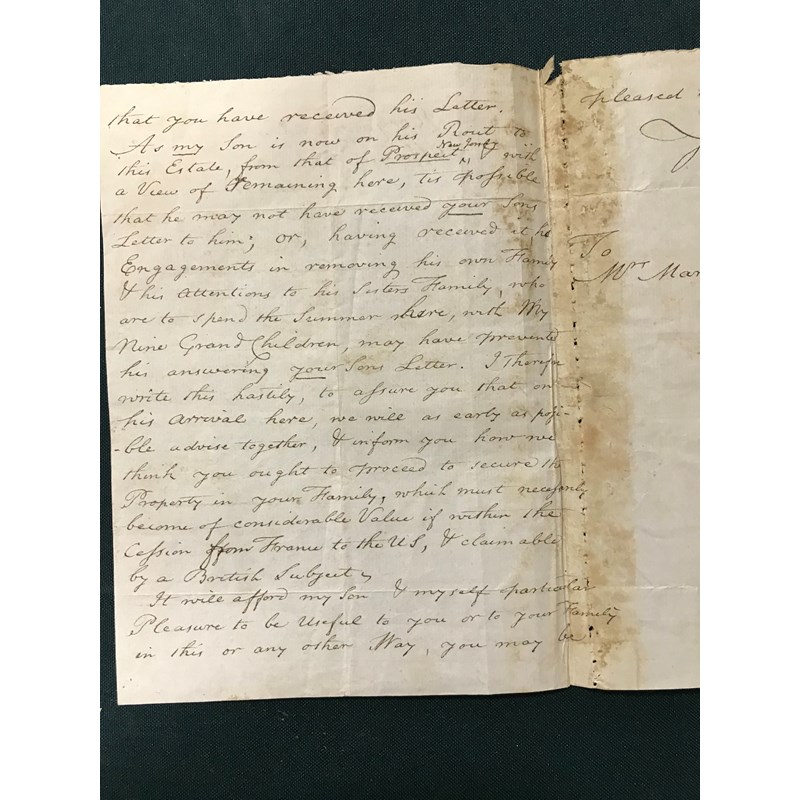 that you have received his Letter.
As my Son is now on his Rout to
this Estate, from that of Prospect ^ New Jersey & with
a View of remaining here, tis possible
that he may not have received your Sons
Letter to him; or, having received it, his
Engagements in removing his own Family
& his Attentions to his Sisters Family, who
are to spend the Summer here, with My
Nine Grand Children, may have prevented
his answering your Sons Letter. I Therefore
write this hastily, to assure you that on
his Arrival here, we will as early as possi-
-ble advise together, & inform you how we
think you ought to proceed to secure the
Property in your Family, which must necessarily
become of considerable Value if within the
Cession from France to the US, & claimable
by a British Subject,
It will afford my Son & myself particular
Pleasure to be Useful to you or to your Family
in this or any other Way, you may be
pleased
To
Mrs Mar